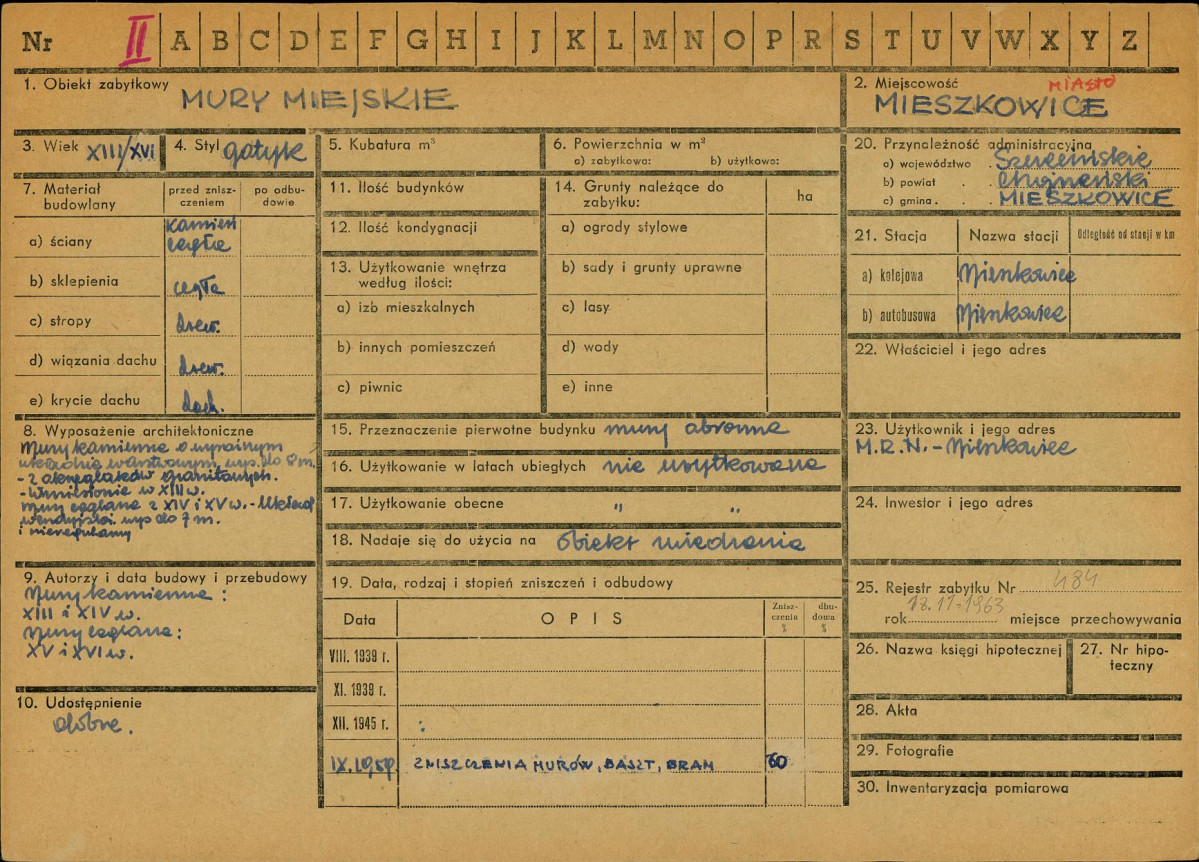 Nr II A B C D E F G H I J K L M N O P R S T U V W X Y Z
1. Obiekt zabytkowy MURY MIEJSKIE
2. Miejscowość MIASTO
MIESZKOWICE
3. Wiek XIII/XVI
4. Styl gotyk
5. Kubatura m³
6. Powierzchnia w m²
a) zabytkowa: b) użytkowa:
20. Przynależność administracyjna
a) województwo Szczecińskie
b) powiat Chojneński
c) gmina MIESZKOWICE
7. Materiał budowlany
przed zniszczeniem
po odbudowie
a) ściany kamień
cegła
b) sklepienia cegła
c) stropy drew.
d) wiązania dachu drew.
e) krycie dachu dach.
11. Ilość budynków
12. Ilość kondygnacji
13. Użytkowanie wnętrza
według ilości:
a) izb mieszkalnych
b) innych pomieszczeń
c) piwnic
14. Grunty należące do
zabytku:
ha
a) ogrody stylowe
b) sady i grunty uprawne
c) lasy
d) wody
e) inne
21. Stacja Nazwa stacji Odległość od stacji w km
a) kolejowa Mieszkowice
b) autobusowa Mieszkowice
22. Właściciel i jego adres
8. Wyposażenie architektoniczne
Mury kamienne o wyraźnym
układzie warstwowym wys. do 8 m.
- z okrąglaków granitowych.
- Wzniesione w XIII w.
Mury ceglane z XIV i XV w. - Układ
wendyjski wys do 7 m.
i nieregularny
15. Przeznaczenie pierwotne budynku mury obronne
16. Użytkowanie w latach ubiegłych nie użytkowane
17. Użytkowanie obecne " "
18. Nadaje się do użycia na obiekt zwiedzania
23. Użytkownik i jego adres
M.R.N. - Mieszkowice
24. Inwestor i jego adres
9. Autorzy i data budowy i przebudowy
Mury kamienne:
XIII i XIV w.
Mury ceglane:
XV i XVI w.
10. Udostępnienie
dobre.
19. Data, rodzaj i stopień zniszczeń i odbudowy
Data OPIS Zniszczenia % dbudowa %
VIII. 1939 r.
XI. 1939 r.
XII. 1945 r.
IX. 1959. ZNISZCZENIA MURÓW, BASZT, BRAM 60
25. Rejestr zabytku Nr 484
rok 18.11.1963 miejsce przechowywania
26. Nazwa księgi hipotecznej
27. Nr hipoteczny
28. Akta
29. Fotografie
30. Inwentaryzacja pomiarowa